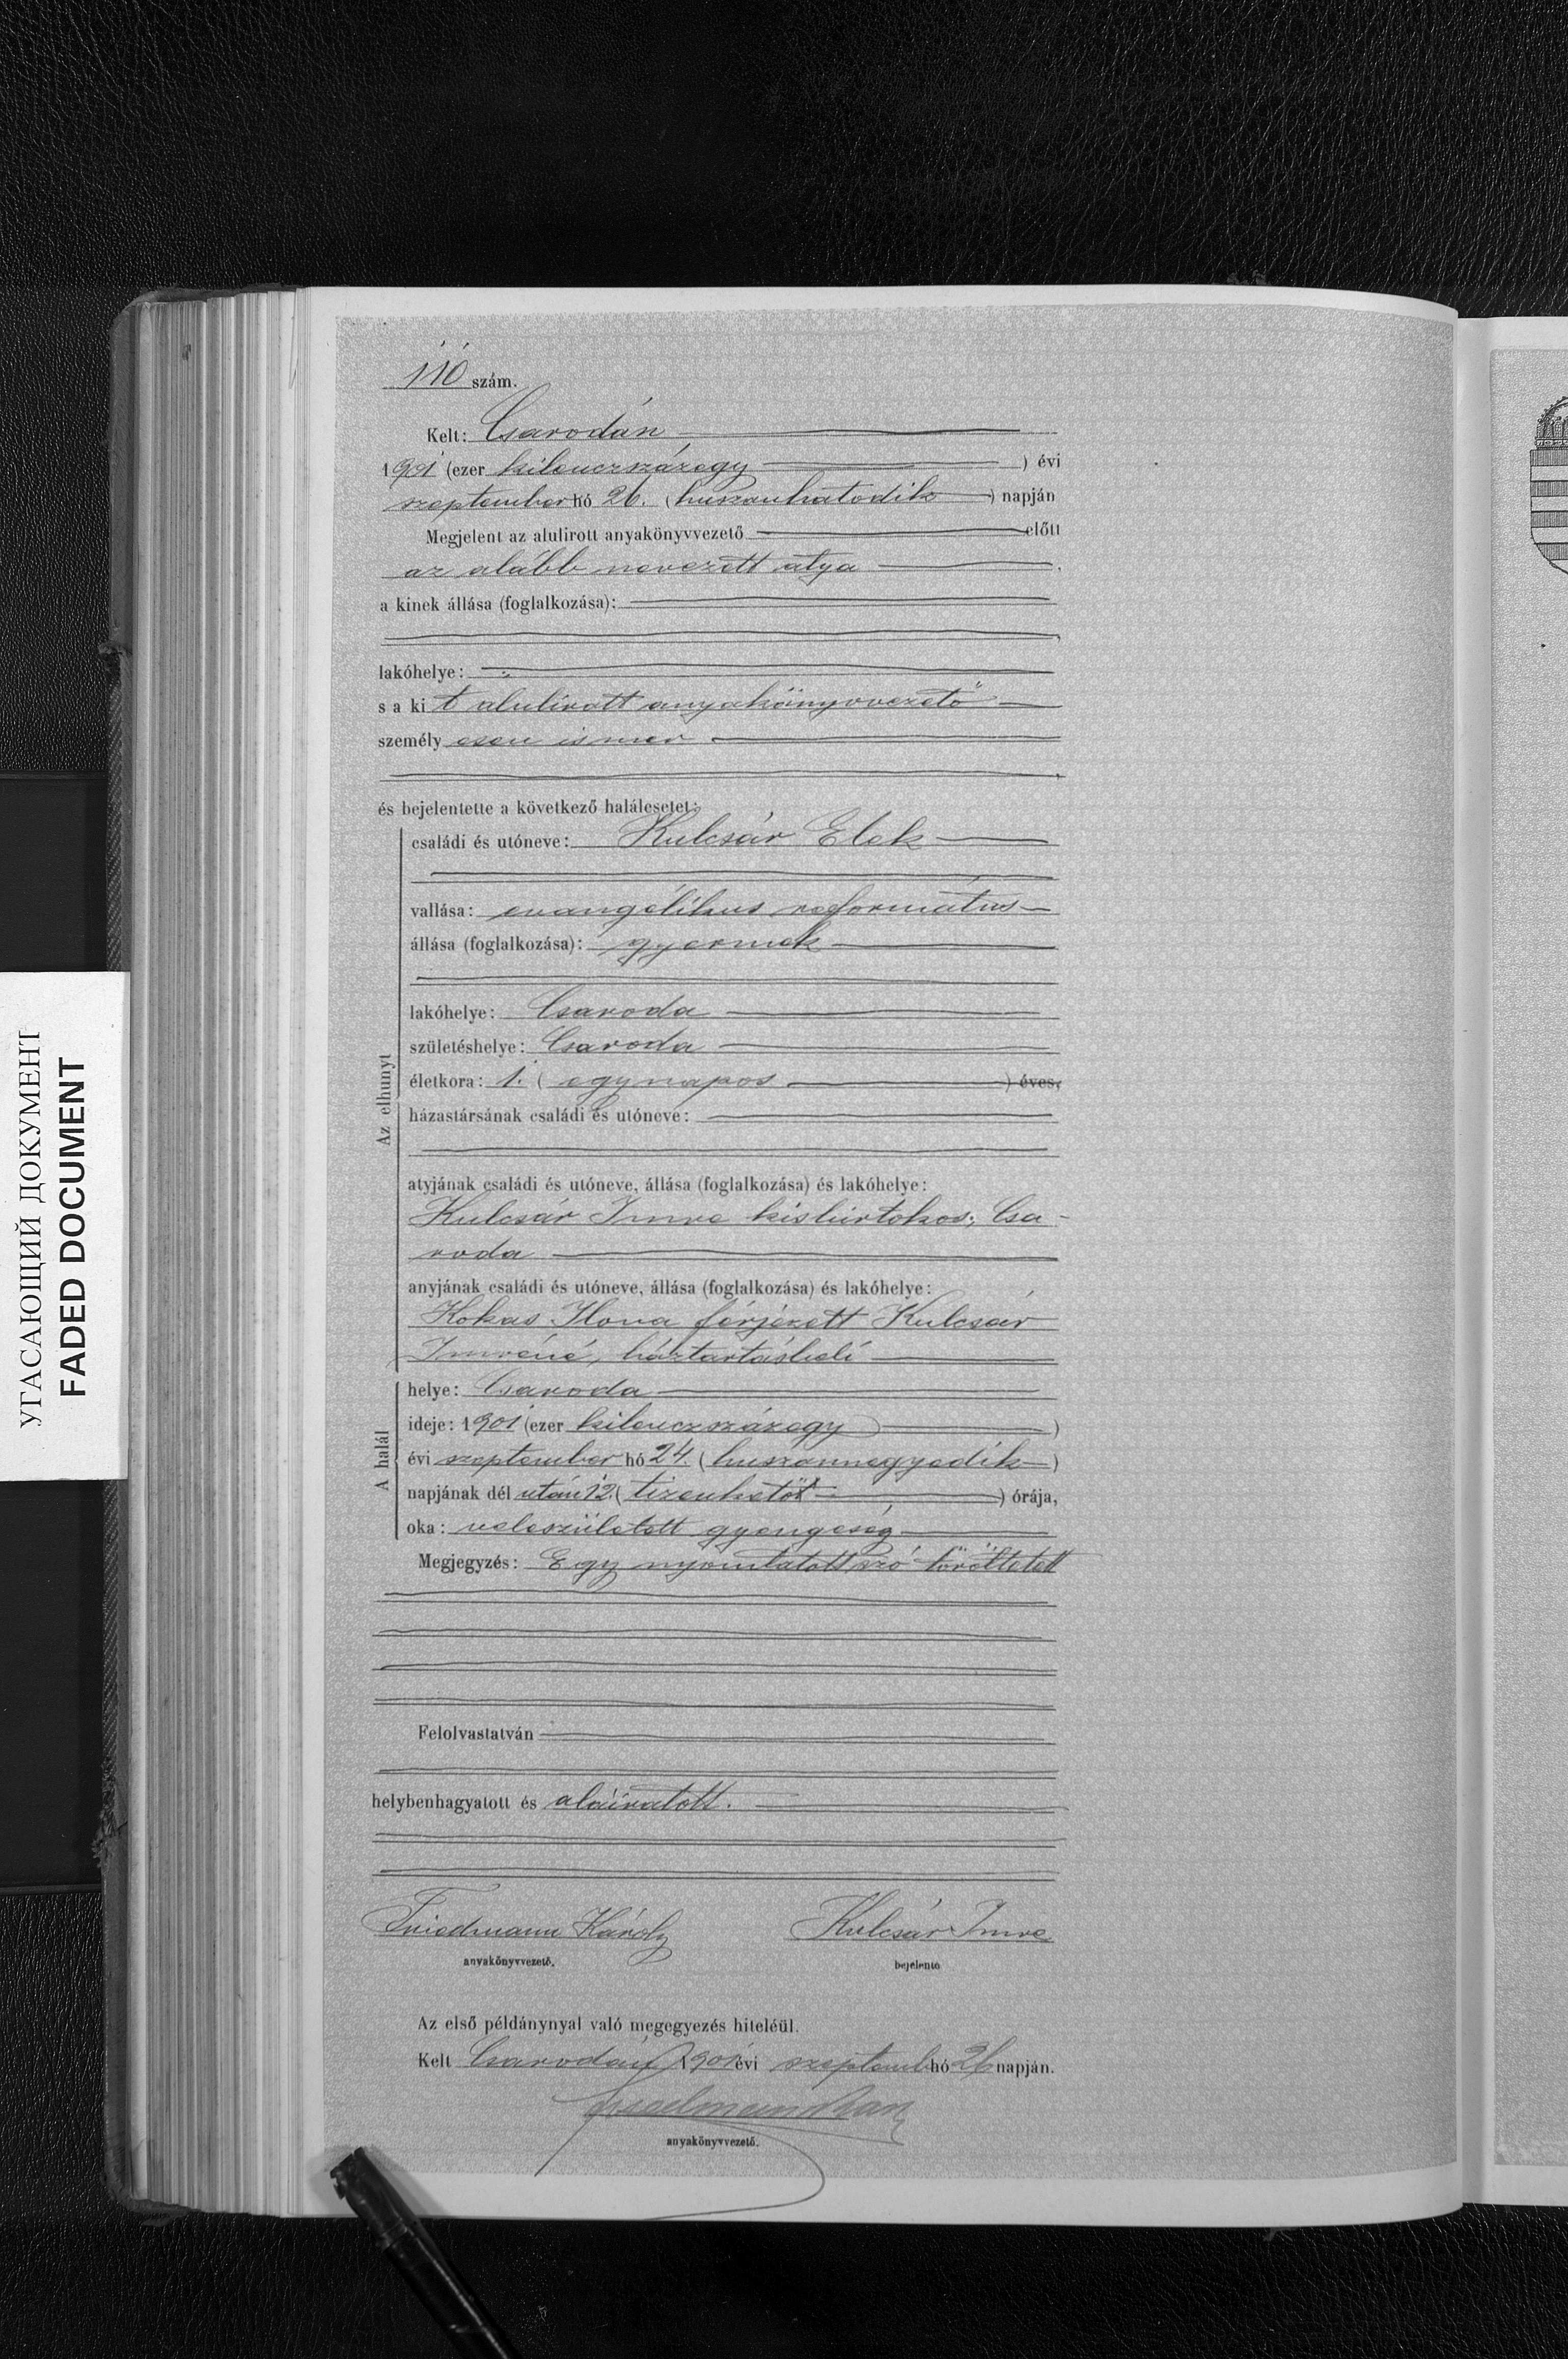 110 szám.
Kelt: Csarodán
1901 (ezer kilenczszázegy ) évi
szeptember hó 26. (huszonhatodik ) napján
Megjelent az alulirott anyakönyvvezető előtt
az alább nevezett atya ,
a kinek állása (foglalkozása):
lakóhelye:
s a kit alulíratt anyakönyvvezető
személyesen ismer
és bejelentette a következő halálesetet:
családi és utóneve: Kulcsár Elek
vallása: evangélikus református
állása (foglalkozása): gyermek
lakóhelye: Csaroda
születéshelye: Csaroda
életkora: 1. ( egynapos ) éves,
Az elhunyt
házastársának családi és utóneve:
atyjának családi és utóneve, állása (foglalkozása) és lakóhelye:
Kulcsár Imre kisbirtokos, Csa-
roda
anyjának családi és utóneve, állása (foglalkozása) és lakóhelye:
Kokas Ilona férjezett Kulcsár
Imréné, háztartásbeli
A halál
helye: Csaroda
ideje: 1901 (ezer kilenczszázegy )
évi szeptember hó 24. ( huszonnegyedik )
napjának dél után 12. ( ) órája,
oka: veleszületett gyengeség
Megjegyzés: Egy nyomtatott szó töröltetett
Felolvastatván
helybenhagyatott és aláíratott.
Friedmann Károly Kulcsár Imre
anyakönyvvezető. bejelentő
Az első példánynyal való megegyezés hiteléül.
Kelt Csarodán 1901 évi szeptemb hó 26 napján.
anyakönyvvezető.
УГАСАЮЩИЙ ДОКУМЕНТ
FADED DOCUMENT